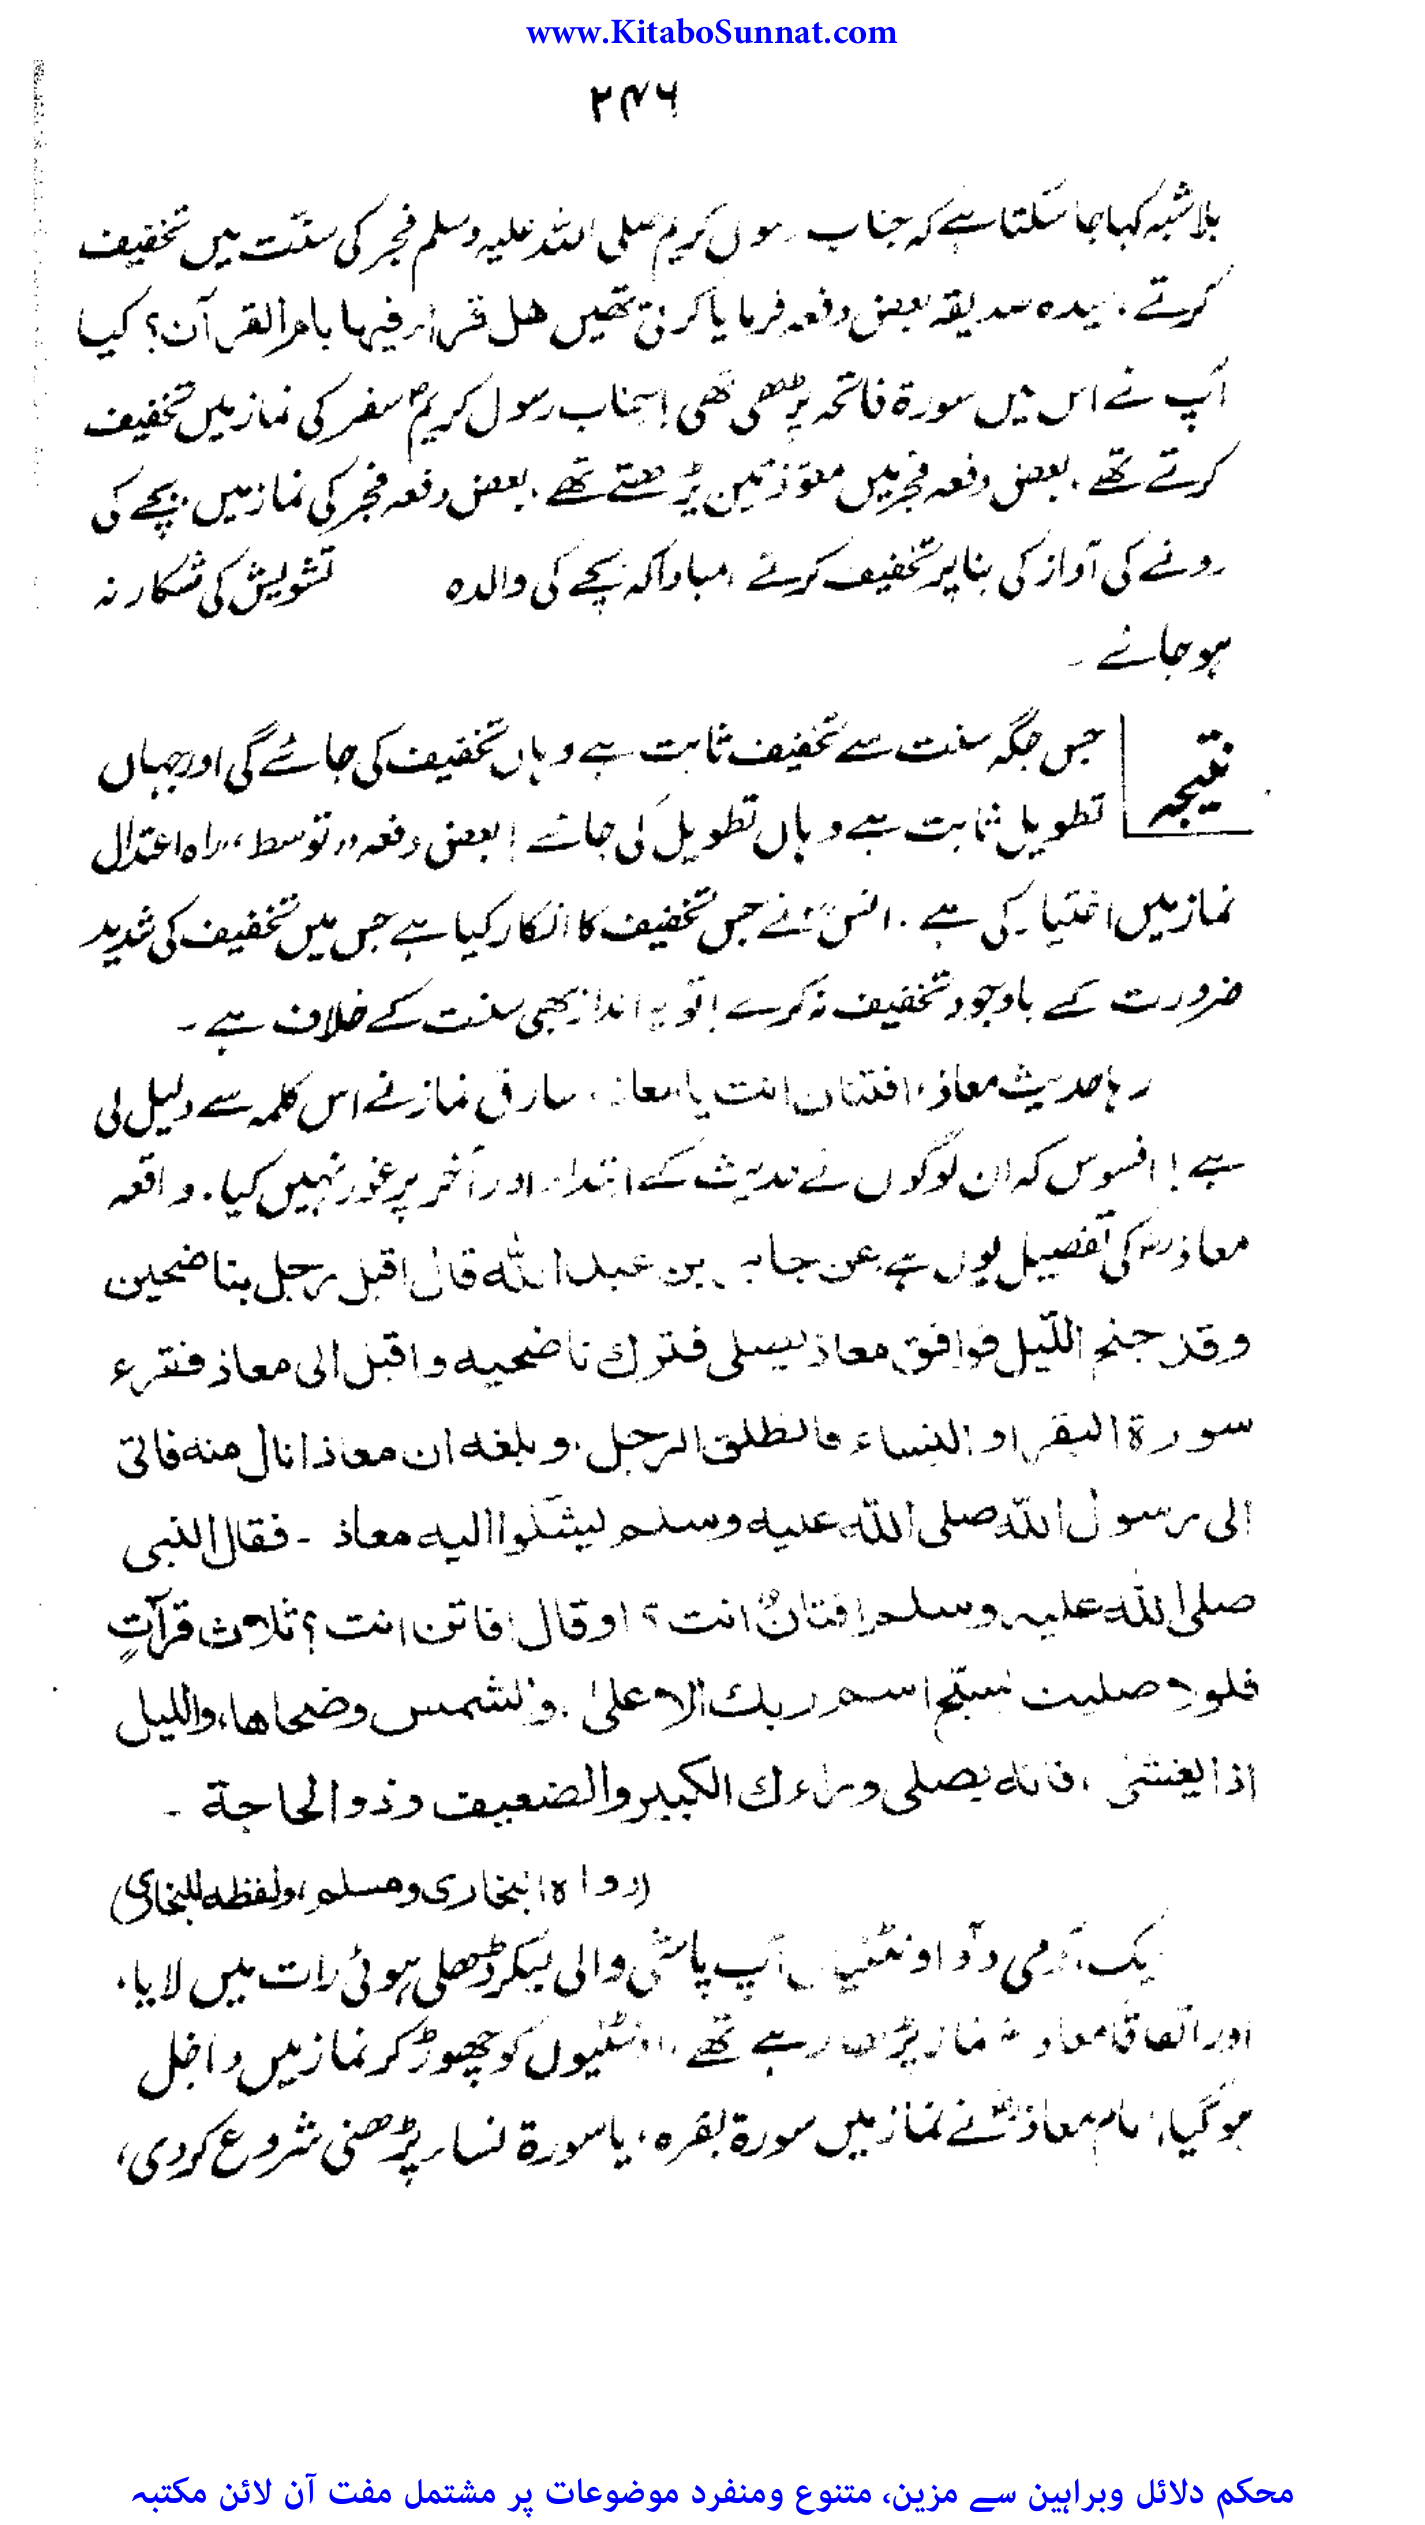 www.KitaboSunnat.com
۲۴۶
بلاشبہ کہا جا سکتا ہے کہ جناب رسول کریم صلی اللہ علیہ وسلم فجر کی سنت میں تخفیف
کرتے، سیدہ صدیقہ بعض دفعہ فرمایا کرتی تھیں هل قرأ فيها بام القرآن؟ کیا
آپ نے اس میں سورۃ فاتحہ پڑھی تھی! جناب رسول کریمؐ سفر کی نماز میں تخفیف
کرتے تھے، بعض دفعہ فجر میں معوّذتین پڑھتے تھے، بعض دفعہ فجر کی نماز میں بچے کی
رونے کی آواز کی بنا پر تخفیف کرتے، مبادا کہ بچے کی والدہ تشویش کی شکار نہ
ہو جائے ۔
نتیجہ
جس جگہ سنت سے تخفیف ثابت ہے وہاں تخفیف کی جائے گی اور جہاں
تطویل ثابت ہے وہاں تطویل کی جائے! بعض دفعہ ”توسط“ راہ اعتدال
نماز میں اختیار کی ہے ۔ انسؓ نے جس تخفیف کا انکار کیا ہے جس میں تخفیف کی شدید
ضرورت کے باوجود تخفیف نہ کرے! تو یہ انداز بھی سنت کے خلاف ہے ۔
رہا حدیث معاذ، افتنان انت یا معاذ، سارق نماز نے اس کلمہ سے دلیل لی
ہے! افسوس کہ ان لوگوں نے حدیث کے ابتداء اور آخر پر غور نہیں کیا ۔ واقعہ
معاذؓ کی تفصیل یوں ہے عن جابر بن عبد الله قال اقبل رجل بناضحين
وقد جنح اللّيل فوافق معاذ يصلى فترك ناضحيه واقبل الى معاذ فقرء
سورة البقر او النساء فانطلق الرجل، وبلغه ان معاذا نال منه فاتى
الى رسول الله صلى الله عليه وسلم ليشكوا اليه معاذ ۔ فقال النبى
صلى الله عليه وسلم افتانٌ انت؟ او قال افاتن انت؟ ثلاث قرآتٍ
فلولا صليت بسبّح اسم ربك الاعلىٰ، والشمس وضحاها، والليل
اذا يغشىٰ، فانه يصلى وراءك الكبير والضعيف وذو الحاجة ۔
(رواه البخارى ومسلم، ولفظه للبخارى)
ایک آدمی دو اونٹنیاں آپ پاشی والی لیکر ڈھلی ہوئی رات میں لایا،
اور اتفاقا معاذ نماز پڑھا رہے تھے، اونٹنیوں کو چھوڑ کر نماز میں داخل
ہو گیا، امام معاذؓ نے نماز میں سورۃ بقرہ، یا سورۃ نساء پڑھنی شروع کر دی،
محکم دلائل وبراہین سے مزین، متنوع ومنفرد موضوعات پر مشتمل مفت آن لائن مکتبہ